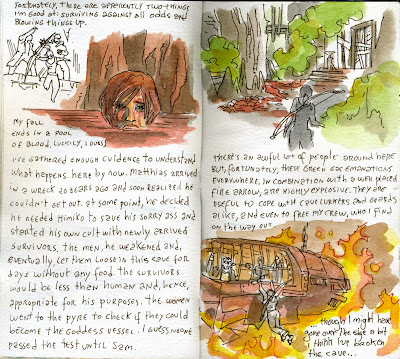 Fortunately, there are apparently two things
I'm good at: surviving against all odds and
blowing things up.
My fall
ends in a pool
of blood. Luckily, I guess
I've gathered enough evidence to understand
what happens here by now. Matthias arrived
in a wreck 20 years ago and soon realised he
couldn't get out. At some point, he decided
he needed Himiko to save his sorry ass and
started his own cult with newly arrived
survivors. The men, he weakened and,
eventually let them loose in this cave for
days without any food. The survivors
would be less than human and, hence,
appropriate for his purposes. The women
went to the pyre to check if they could
become the goddess vessel. I guess none
passed the test until Sam.
There's an awful lot of people around here
but, fortunately, these green gas emanations
everywhere, in combination with a well placed
fire arrow, are highly explosive. They are
useful to cope with cave lurkers and guards
alike, and even to free my crew, who I find
on the way out
though I might have
gone over the edge a bit
think I've broken
the cave...